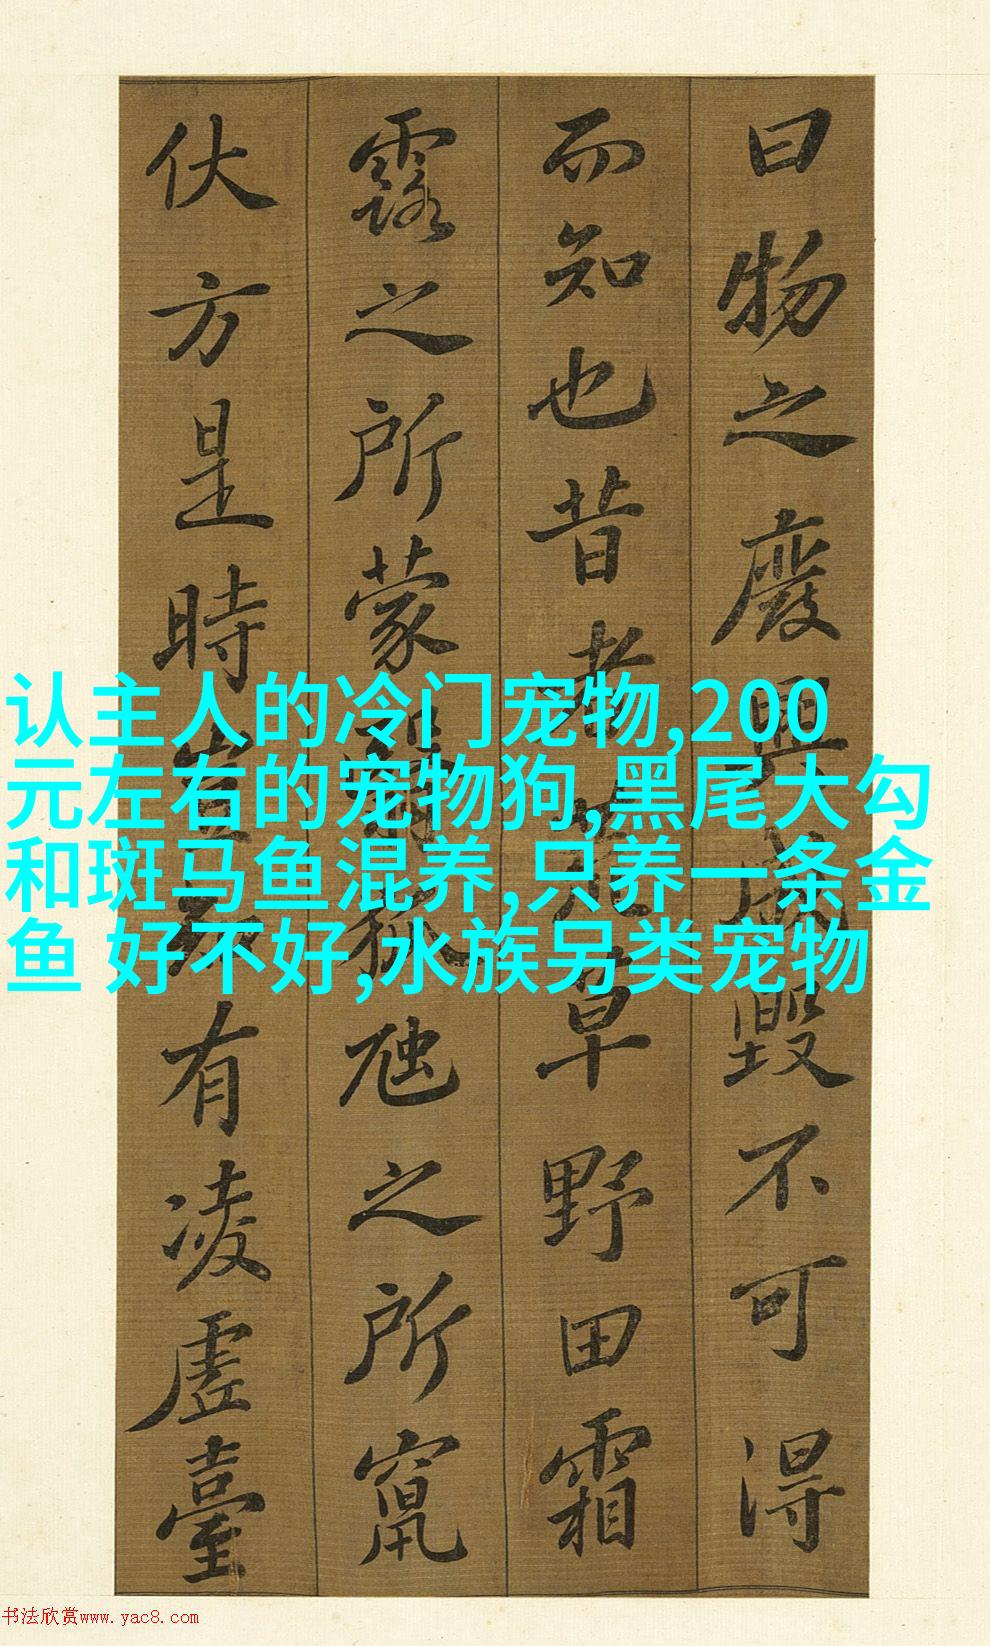 曰物之廢興成毀不可得
而知也昔者荒草野田霜
露之所蒙翳狐虺之所竄
伏方是時豈有凌虛臺
认主人的冷门宠物,200
元左右的宠物狗,黑尾大勾
和斑马鱼混养,只养一条金
鱼 好不好,水族另类宠物
书法欣赏www.yac8.com